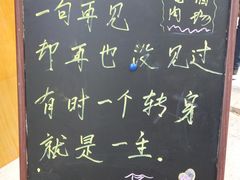 一句再见
却再也没见过
有时一个转身
就是一主.